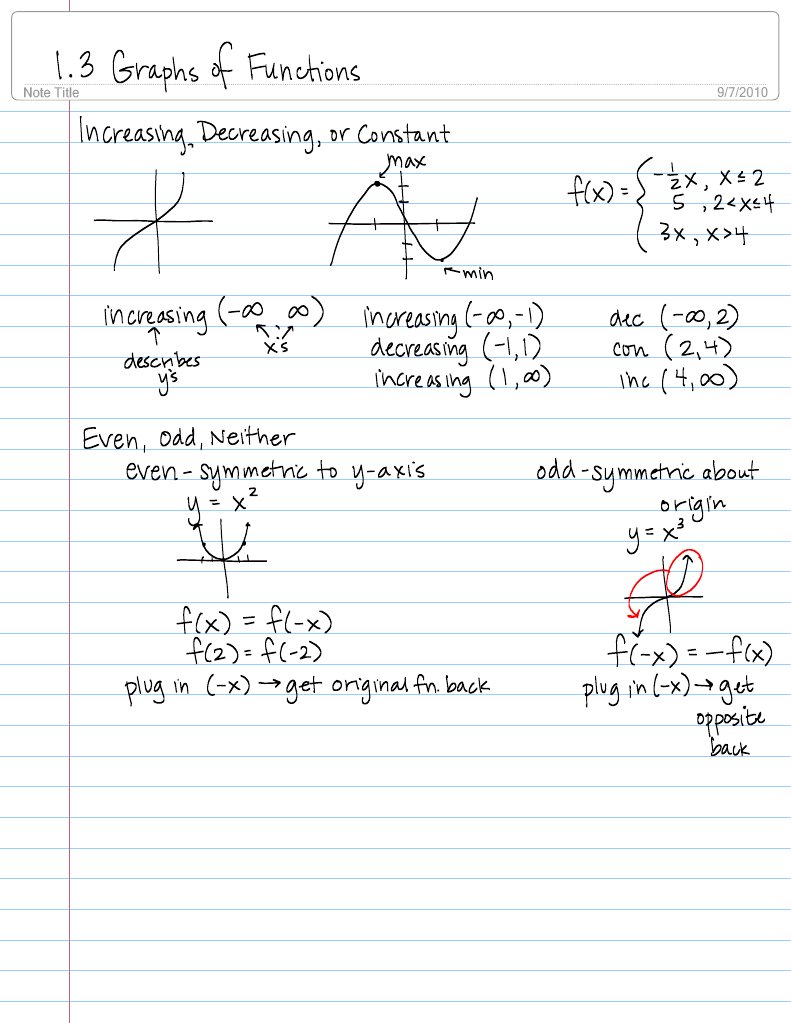 1.3 Graphs of Functions
Note Title
9/7/2010
Increasing, Decreasing, or Constant
max
min
f(x) = { -1/2 x, x ≤ 2
5, 2 < x ≤ 4
3x, x > 4
increasing (-∞ ∞)
describes
y's
x's
increasing (-∞, -1)
decreasing (-1, 1)
increasing (1, ∞)
dec (-∞, 2)
con (2, 4)
inc (4, ∞)
Even, Odd, Neither
even - symmetric to y-axis
y = x²
f(x) = f(-x)
f(2) = f(-2)
plug in (-x) → get original fn. back
odd - symmetric about
origin
y = x³
f(-x) = -f(x)
plug in (-x) → get
opposite
back